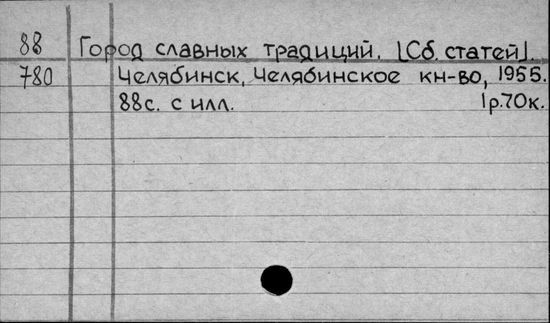 88 Город славных традиций. [Сб. статей].
780 Челябинск, Челябинское кн-во, 1955.
88с. с илл. 1р.70к.